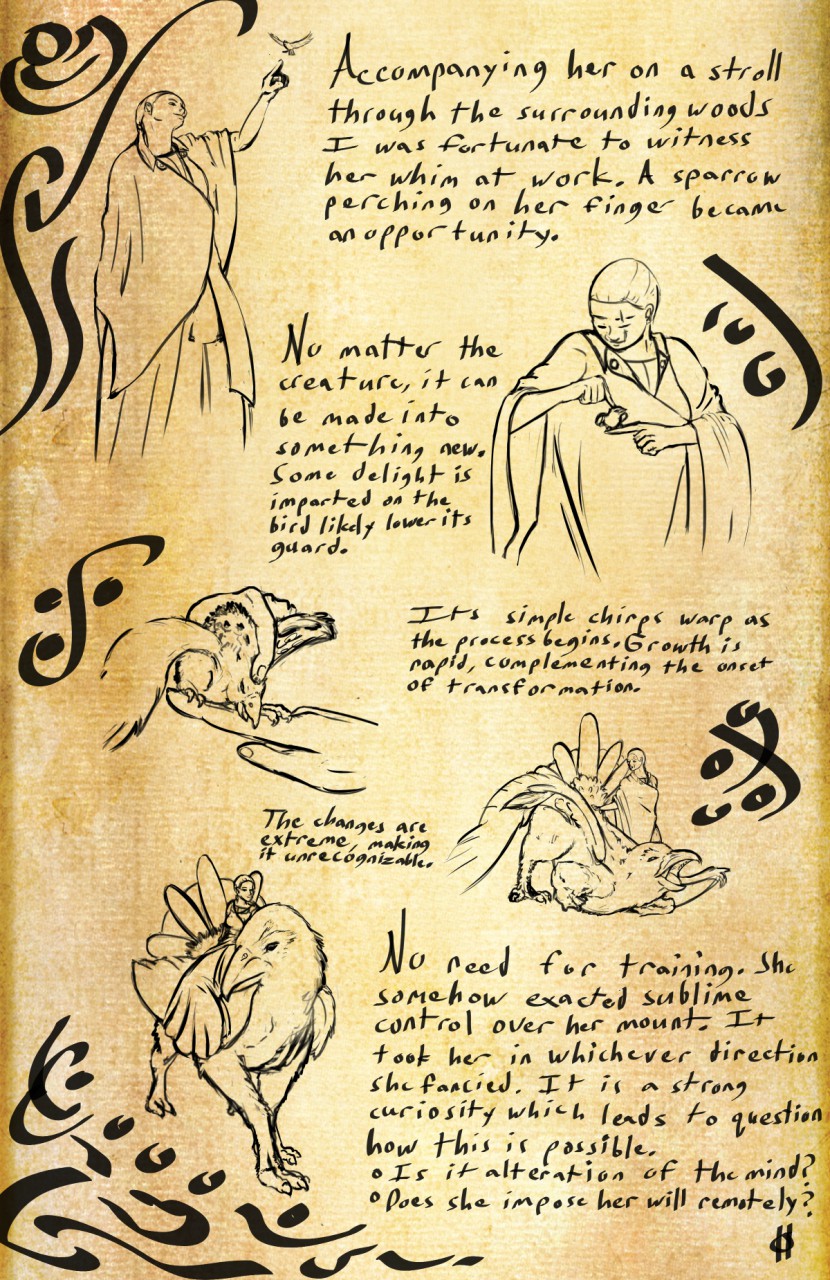 Accompanying her on a stroll
through the surrounding woods
I was fortunate to witness
her whim at work. A sparrow
perching on her finger became
an opportunity.
No matter the
creature, it can
be made into
something new.
Some delight is
imparted on the
bird likely lower its
guard.
Its simple chirps warp as
the process begins. Growth is
rapid, complementing the onset
of transformation.
The changes are
extreme, making
it unrecognizable.
No need for training. She
somehow exacted sublime
control over her mount. It
took her in whichever direction
she fancied. It is a strong
curiosity which leads to question
how this is possible.
• Is it alteration of the mind?
• Does she impose her will remotely?